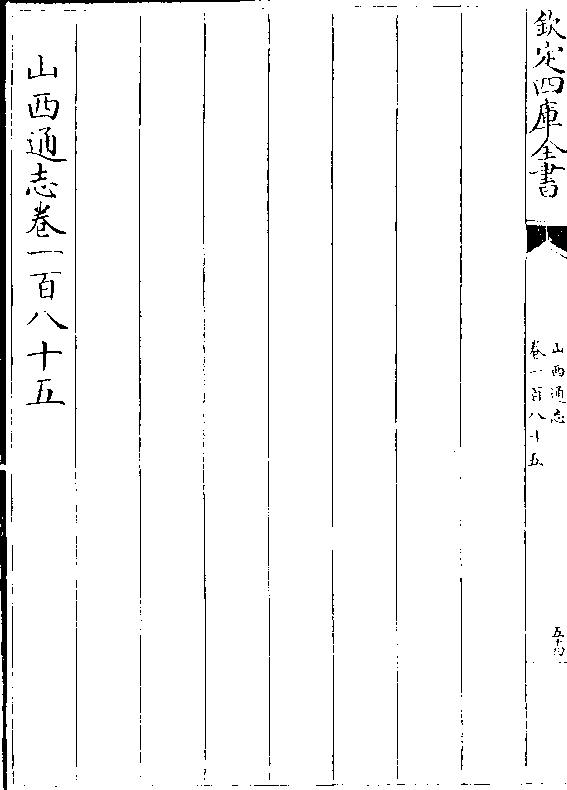 欽定四庫全書
山西通志
卷一百八十五
山西通志卷一百八十五